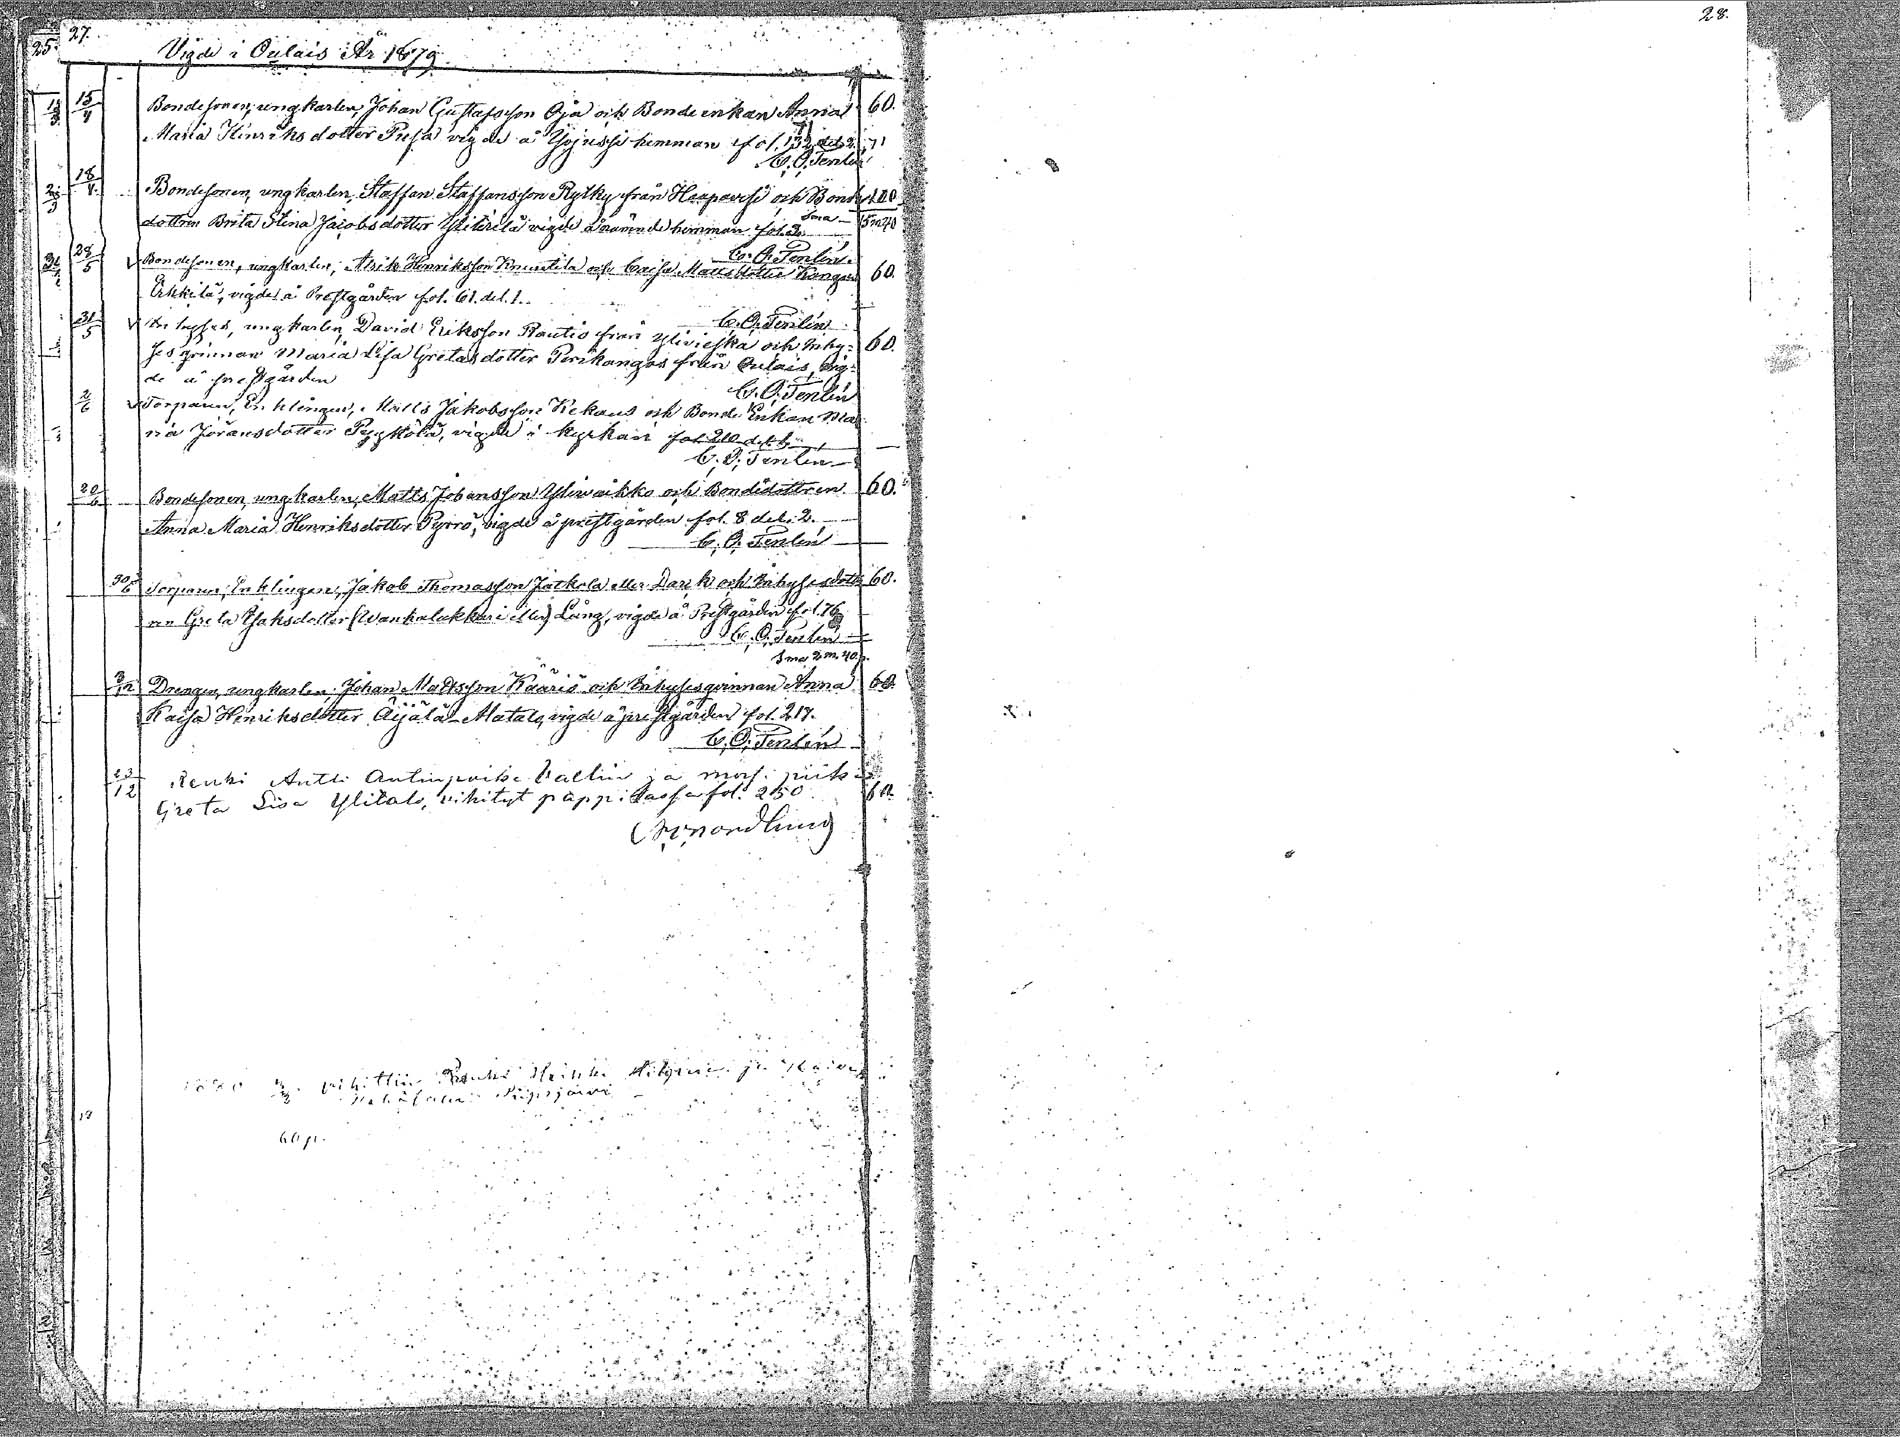 27.
28.
25.
Vigde i Oulais År 1879.
15/4 Bondesonen, ungkarlen, Johan Gustafsson Oja och Bondeenkan Anna 60.
Maria Henriksdotter Pusa vigde å hemman fol. 132 del. 2. 71
C. O. Tenlén
18/4 Bondesonen, ungkarlen, Staffan Staffansson Rytky från Haapavesi och Bonde
dottren Brita Stina Jacobsdotter vigde å nämnde hemman fol. 2.
C. O. Tenlén.
28/5 Bondesonen, ungkarlen, Henriksson Knuutila och Caisa Mattsdotter Kangas 60.
Erkkilä, vigde å Prestgården fol. 61. del. 1.
C. O. Tenlén
31/5 Inhyses, ungkarlen, David Eriksson Rautio från Ylivieska och Inhy- 60.
ses qvinnan Maria Lisa Gretasdotter Perikangas från Oulais, vig-
de å prestgården
C. O. Tenlén
2/6 Torparen, Enklingen, Matts Jakobsson Kekaus och Bonde Enkan Ma-
ria Jöransdotter Pyykölä, vigde i kyrkan fol. 210 del. 1.
C. O. Tenlén
20/6 Bondesonen, ungkarlen, Matts Johansson Yliwaikko och Bondedottren 60.
Anna Maria Henriksdotter Pyrrö, vigde å prestgården fol. 8 del. 2.
C. O. Tenlén
30/6 Torparen, Enklingen, Jakob Thomasson Jatkola eller Darik och Inhysesdott- 60.
ren Greta Isaksdotter (Wankalukkari eller) Lång, vigde å Prestgården fol. 76
C. O. Tenlén
Sma 2 m. 40 p.
Drengen, ungkarlen, Johan Mattsson Kääriä och Inhysesqvinnan Anna 60.
Kaisa Henriksdotter Äijälä-Matala, vigde å prestgården fol. 217.
C. O. Tenlén
23/12 Renki Antti Antinpoika Vallin ja morf. piika
Greta Lisa Ylitalo, vihityt pappilassa fol. 250. 60.
Nordlund
1880 vihittiin Renki Heikki ja
Pyhäjärvi
60 p.